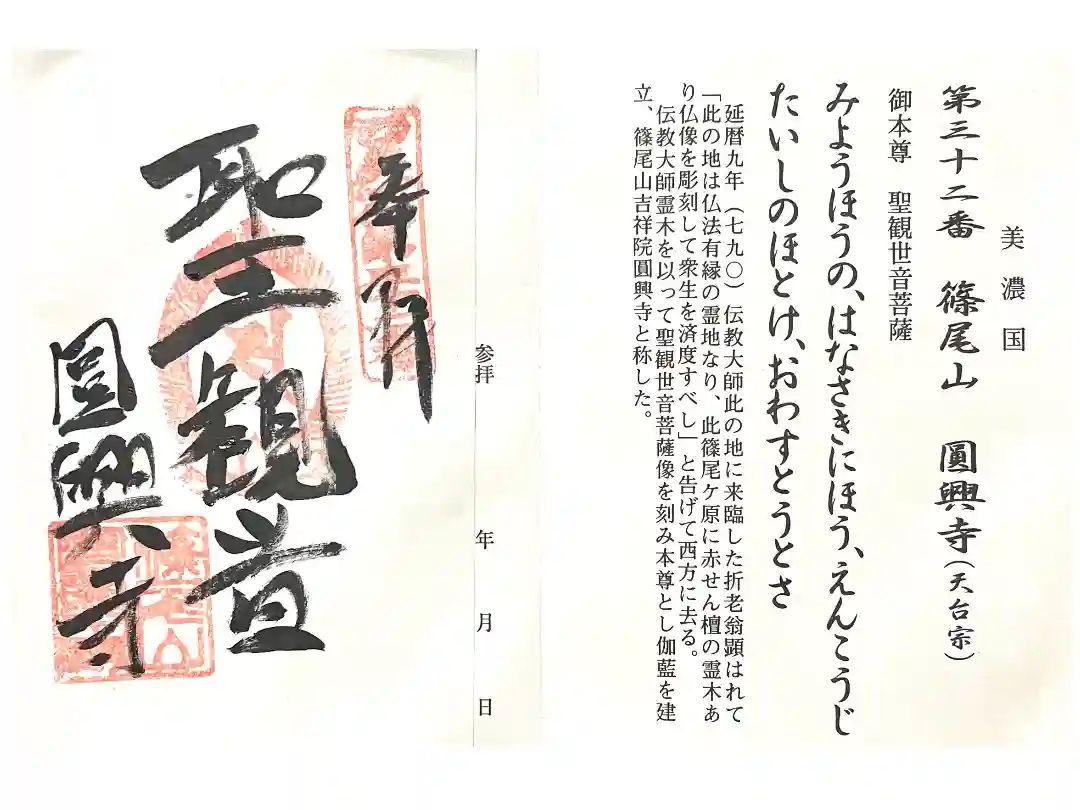 美濃国
第三十二番 篠尾山 圓興寺（天台宗）
御本尊 聖観世音菩薩
みようほうの、はなさきにほう、えんこうじ
たいしのほとけ、おわすとうとさ
延暦九年（七九〇）伝教大師此の地に来臨した折老翁顕はれて
「此の地は仏法有縁の霊地なり、此篠尾ケ原に赤せん檀の霊木あ
り仏像を彫刻して衆生を済度すべし」と告げて西方に去る。
伝教大師霊木を以って聖観世音菩薩像を刻み本尊とし伽藍を建
立、篠尾山吉祥院圓興寺と称した。
参拝 年 月 日
奉拝
聖観音
圓興寺